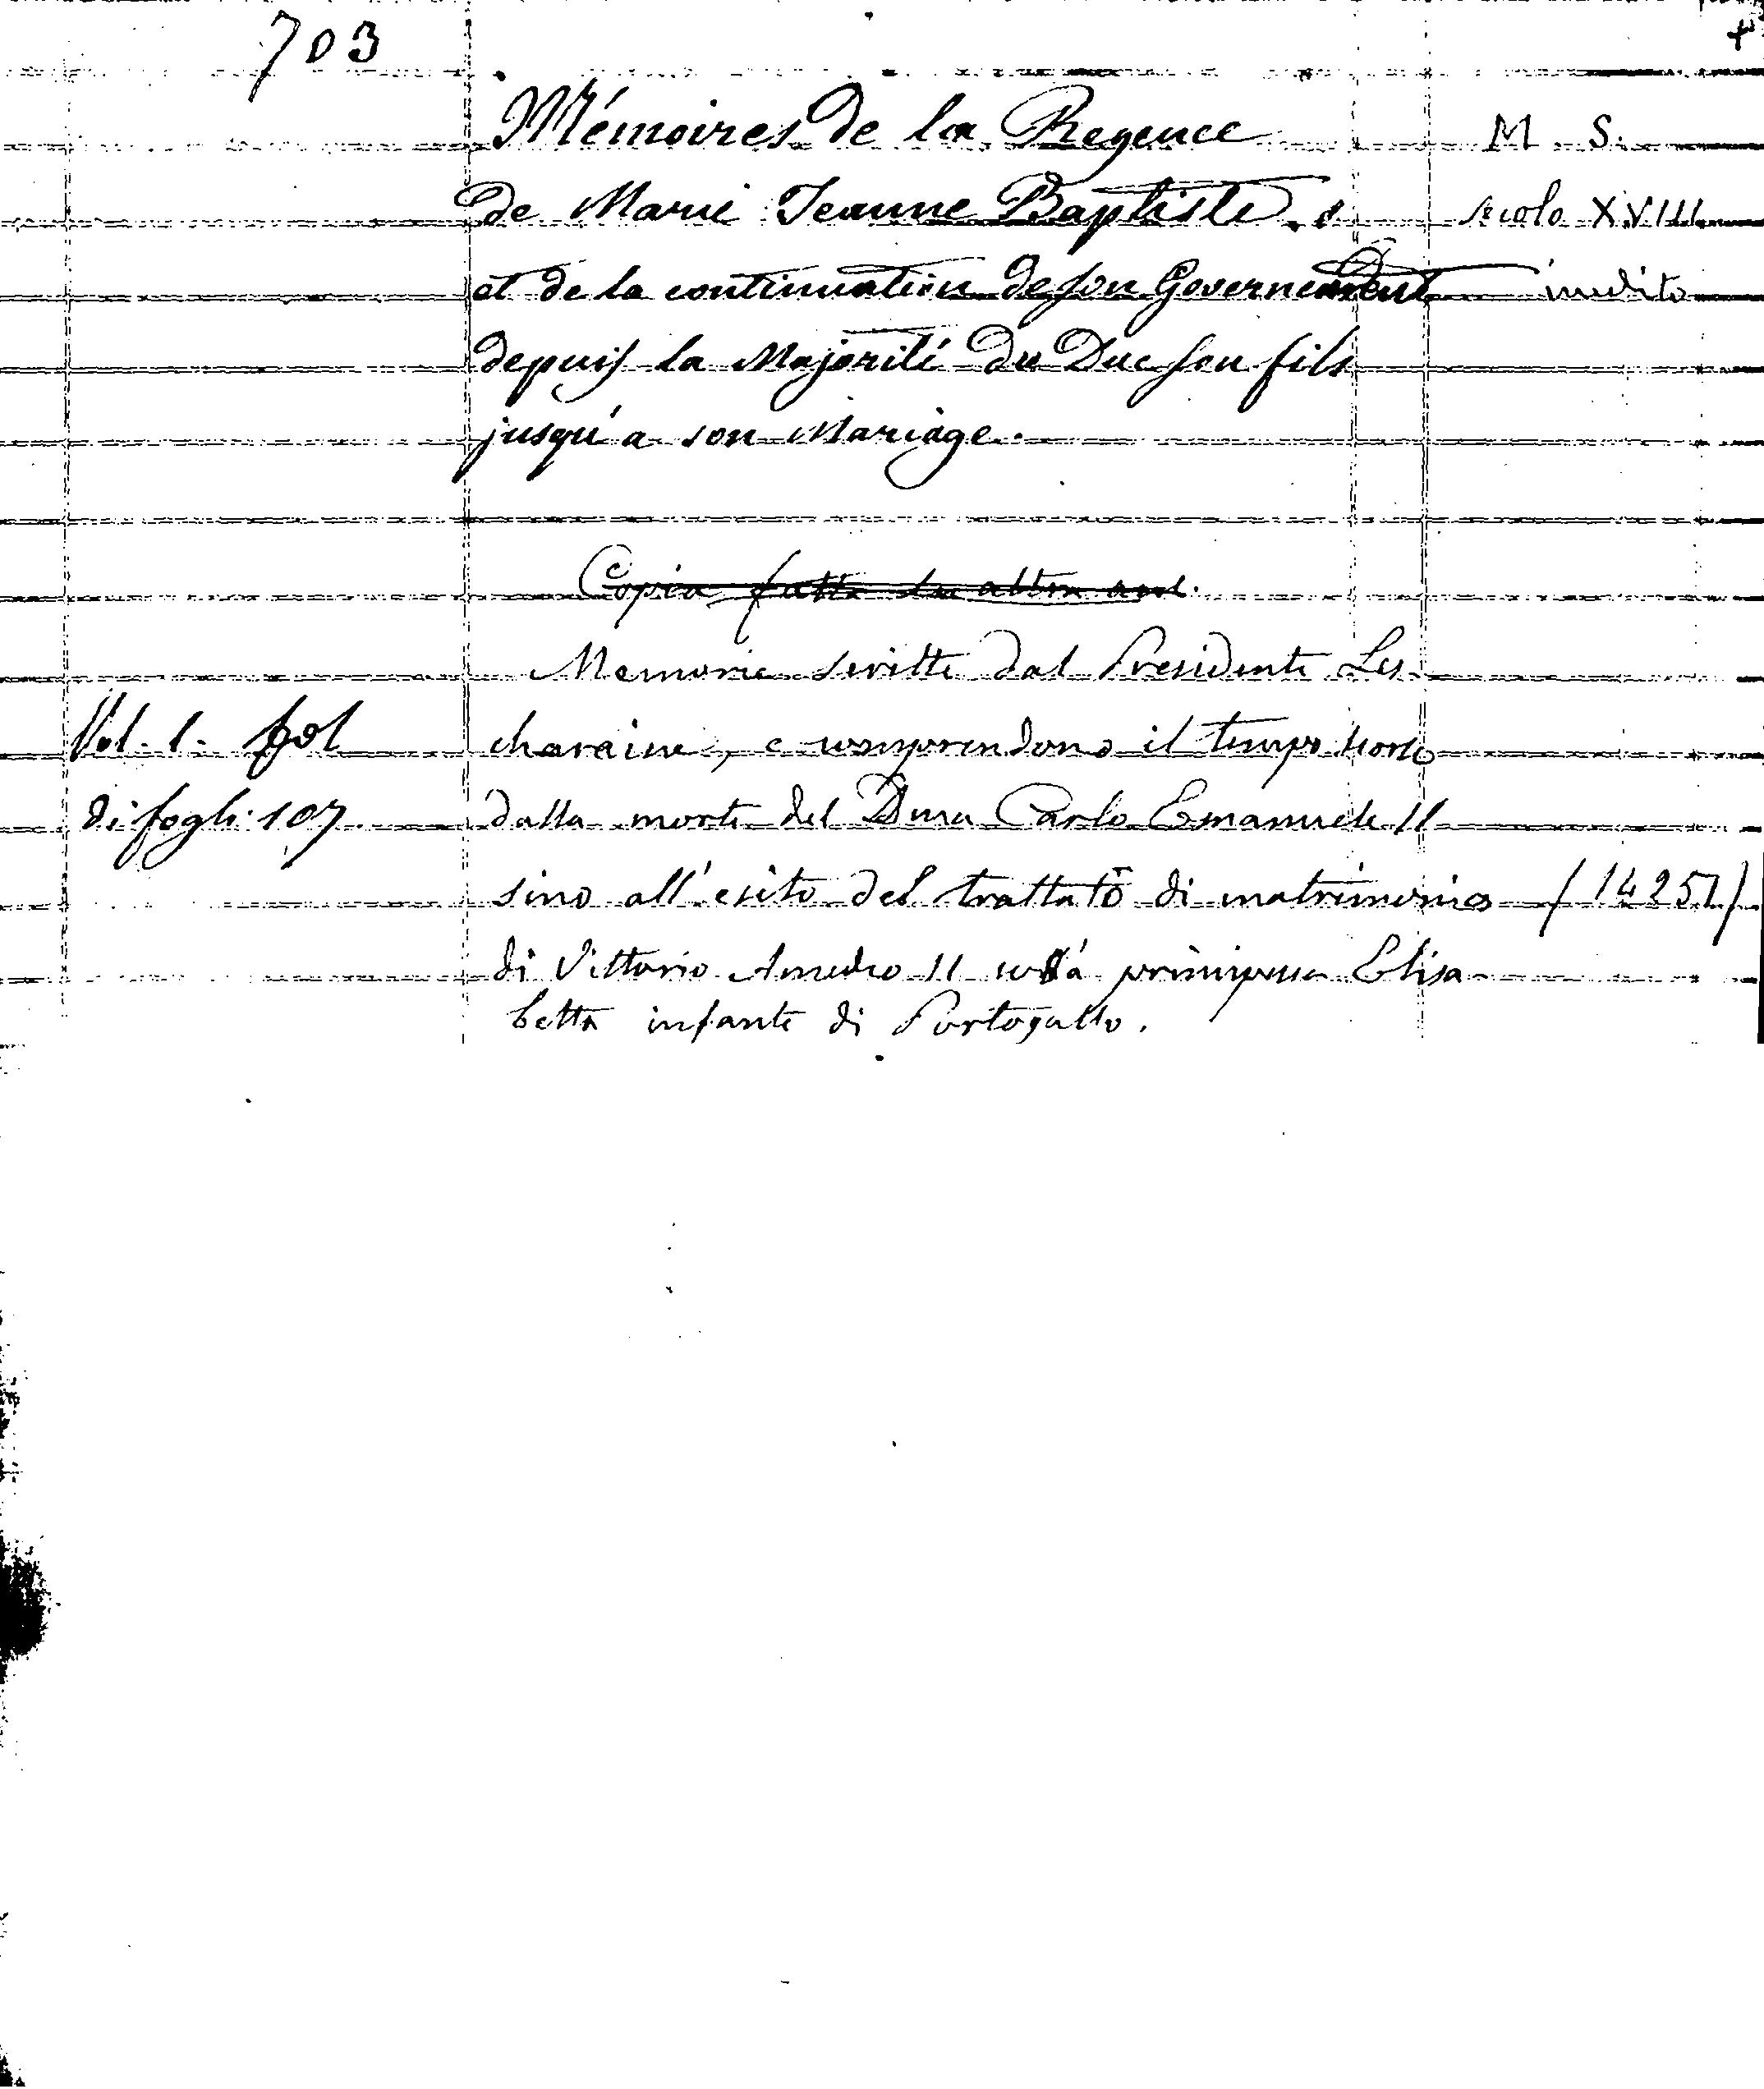 703
Mémoires de la Regence
de Marie Jeanne Baptiste.
et de la continuation de son Governement
depuis la Majorité du Duc son fils
jusqu'a son Mariage.
M. S.
secolo XVIII
inedito
Copia fatta su altro
Memorie scritte dal Presidente Les
charaine, e comprendono il tempo scorso
dalla morte del Duca Carlo Emanuele II
sino all'esito del trattato di matrimonio
di Vittorio Amedeo II colla principessa Elisa
betta infante di Portogallo.
Vol. 1. fol
di fogli 107.
(14251)